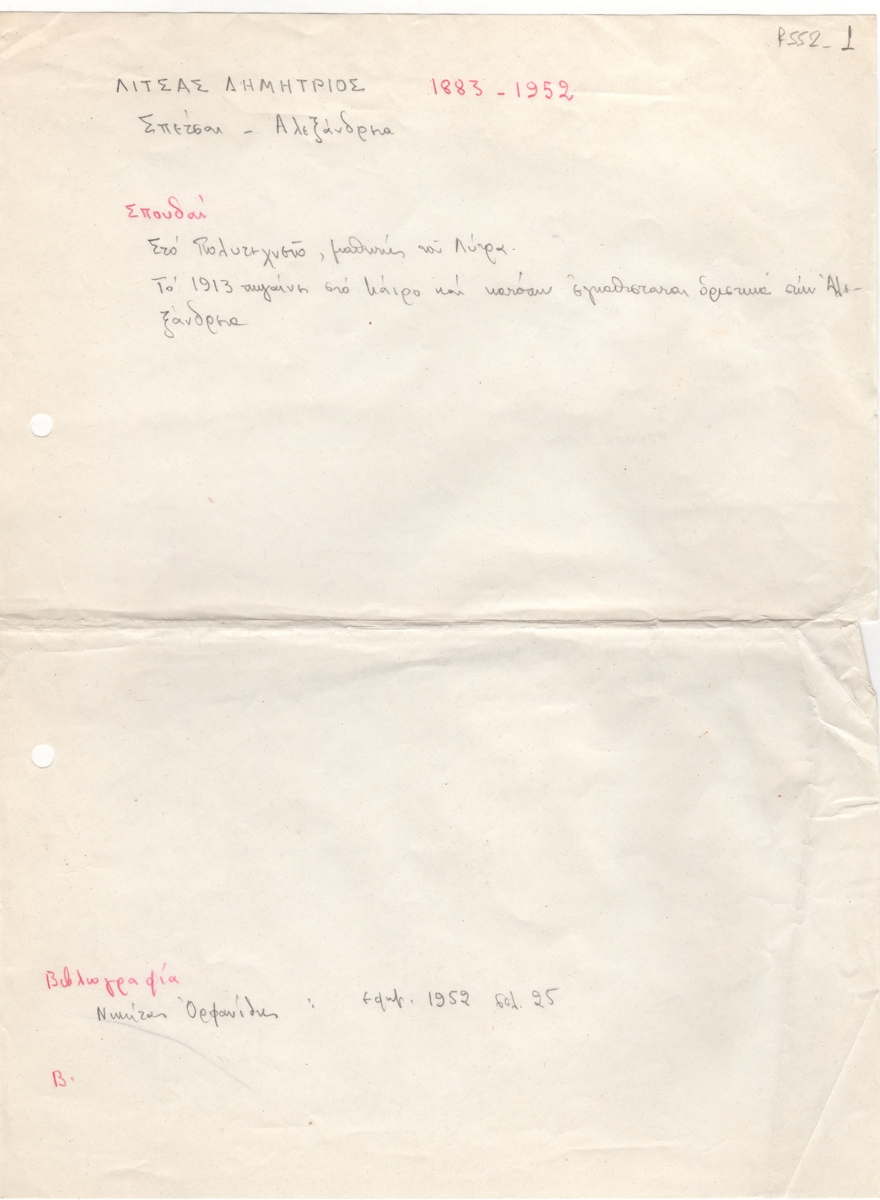 R552-1
ΛΙΤΣΑΣ ΔΗΜΗΤΡΙΟΣ 1883-1952
Σπέτσαι - Αλεξάνδρεια
Σπουδαί
Στό Πολυτεχνεῖο, μαθητής τοῦ Λύτρα.
Τό 1913 πηγαίνει στό Κάιρο καί κατόπιν ἐγκαθίσταται ὁριστικά στήν Ἀλε-
ξάνδρεια
Βιβλιογραφία
Νικήτας Ὀρφανίδης : 1952 σελ. 25
Β.